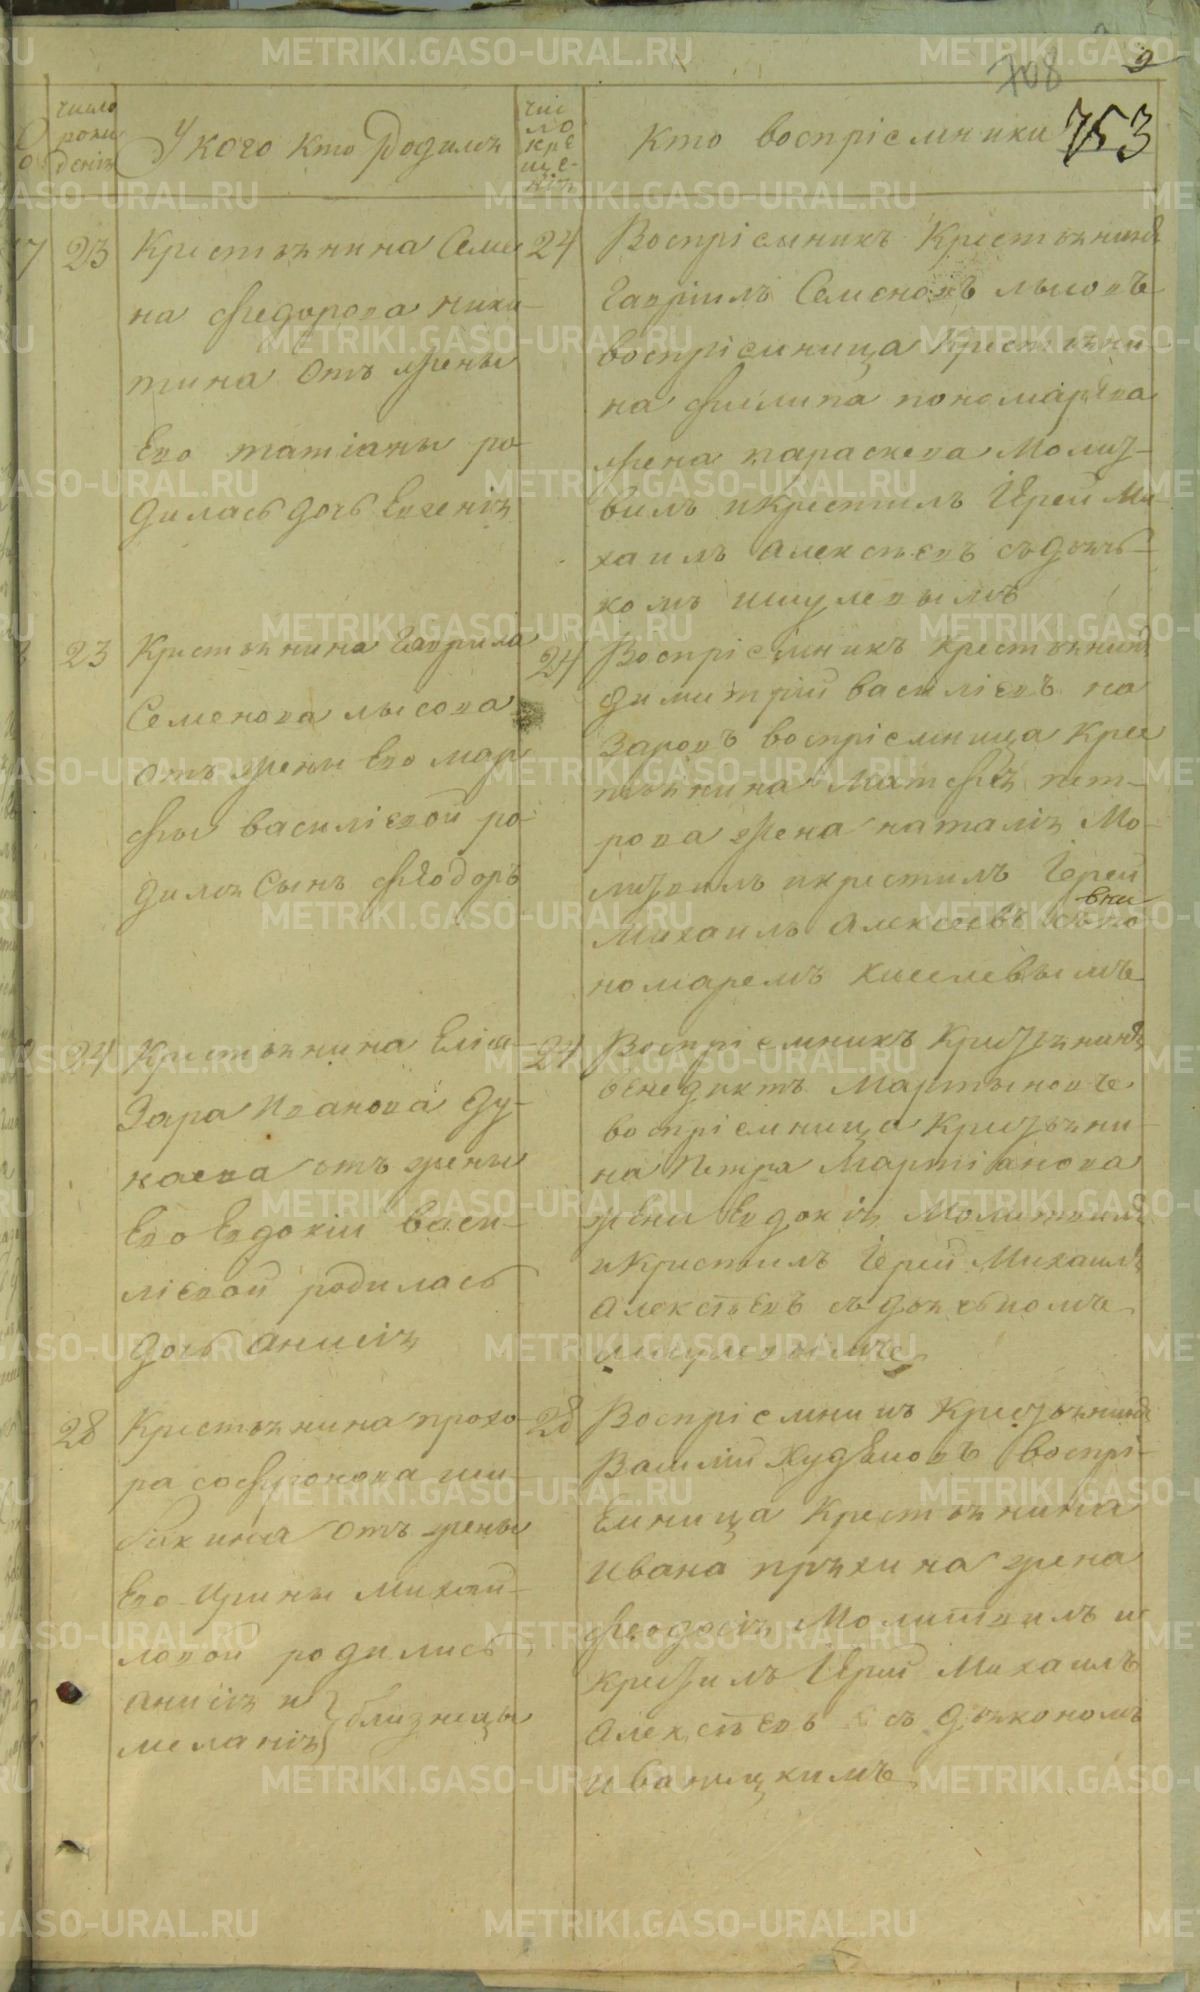 708
9
753
число рожденія
У кого кто родился
число крещенія
Кто воспріемники
7
23
Крестьянина Семе
на Федорова Ники-
тина отъ жены
Его татіаны ро-
дилась дочь Евгенія
24
Воспріемникъ Крестьянинъ
Гавріилъ Семеновъ лысовъ
воспріемница Крестьяни-
на филипа пономарева
жена параскева Молит-
вилъ и крестилъ Іерей Ми-
хаилъ Алексѣевъ съ дьяч-
комъ шмулевымъ
23
Крестьянина Гаврила
Семенова лысова
отъ жены Его мар-
фы василіевой ро-
дился сынъ Феодоръ
24
Воспріемникъ крестьянинъ
димитрій василіевъ на
заровъ воспріемница Крес
тьянина Матфея пет-
рова жена наталія Мо-
литвилъ и крестилъ Іерей
Михаилъ Алексеевъ съ по
номаремъ киселевымъ
24
Крестьянина Еліа-
зара Иванова Ду-
наева отъ жены
Его Евдокіи Васи-
ліевой родилась
дочь анисія
24
Воспріемникъ Крестьянинъ
венедиктъ Мартыновъ
воспріемница Крестьяни-
на Петра Мартіанова
жена Евдокія Молитвилъ
и Крестилъ Іерей Михаилъ
Алексѣевъ съ дьячькомъ
шмулевымъ
28
Крестьянина прохо-
ра софронова ши-
бакина отъ жены
Его Ирины михай-
ловой родились
анисія и
меланія } близнецы
28
Воспріемникъ Крестьянинъ
Василій Худяковъ воспрі-
Емница Крестьянина
Ивана пряхина жена
феодосія Молитвилъ и
крестилъ Іерей Михаилъ
Алексѣевъ съ дьякономъ
Иваницкимъ
METRIKI.GASO-URAL.RU